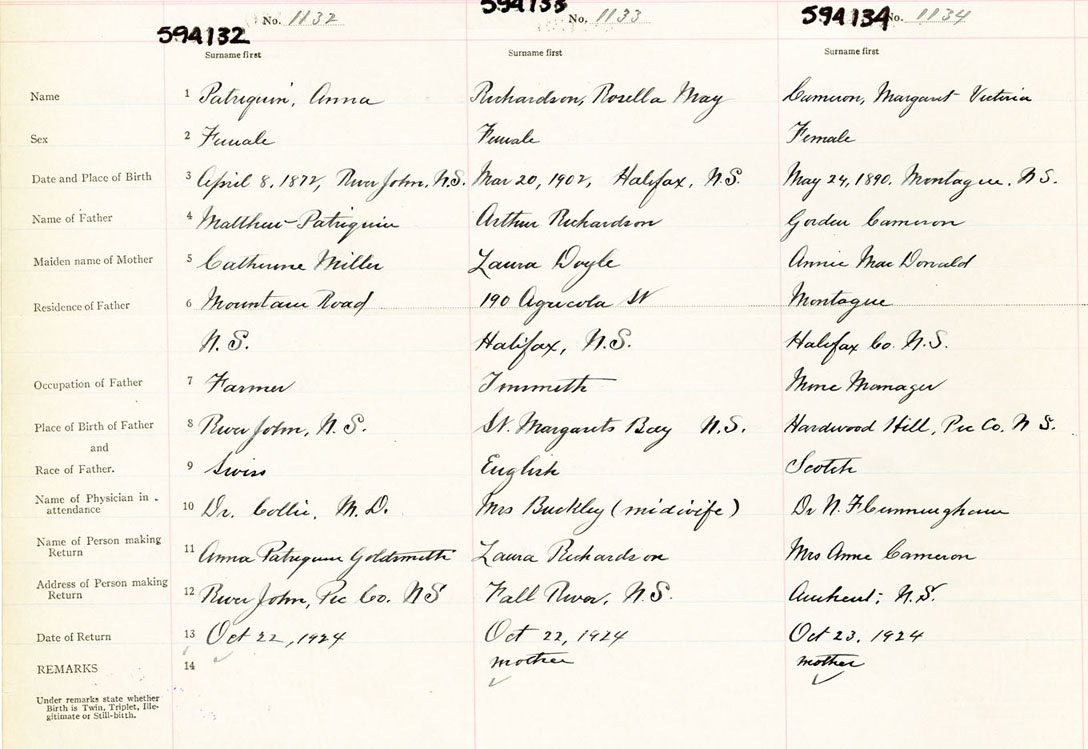 No. 1132 594133 No. 1133 594134 No. 1134
594132
Surname first Surname first Surname first
Name 1 Patriquin, Anna Richardson, Rosella May Cameron, Margaret Victoria
Sex 2 Female Female Female
Date and Place of Birth 3 April 8, 1872, River John, N.S. Mar 20, 1902, Halifax, N.S. May 24, 1890. Montague. N.S.
Name of Father 4 Matthew Patriquin Arthur Richardson Gordon Cameron
Maiden name of Mother 5 Catherine Miller Laura Doyle Annie MacDonald
Residence of Father 6 Mountain Road 190 Agricola St Montague
N.S. Halifax, N.S. Halifax Co. N.S.
Occupation of Father 7 Farmer Tinsmith Mine Manager
Place of Birth of Father 8 River John, N.S. St. Margarets Bay N.S. Hardwood Hill, Pic Co. N S.
and
Race of Father. 9 Swiss English Scotch
Name of Physician in
attendance 10 Dr. Collie, M.D. Mrs Buckley (midwife) Dr N. F Cunningham
Name of Person making
Return 11 Anna Patriquin Goldsmith Laura Richardson Mrs Anne Cameron
Address of Person making
Return 12 River John, Pic Co. N S Fall River, N.S. Amherst, N.S.
Date of Return 13 Oct 22, 1924 Oct 22, 1924 Oct 23, 1924
REMARKS 14 mother mother
Under remarks state whether
Birth is Twin, Triplet, Ille-
gitimate or Still-birth.